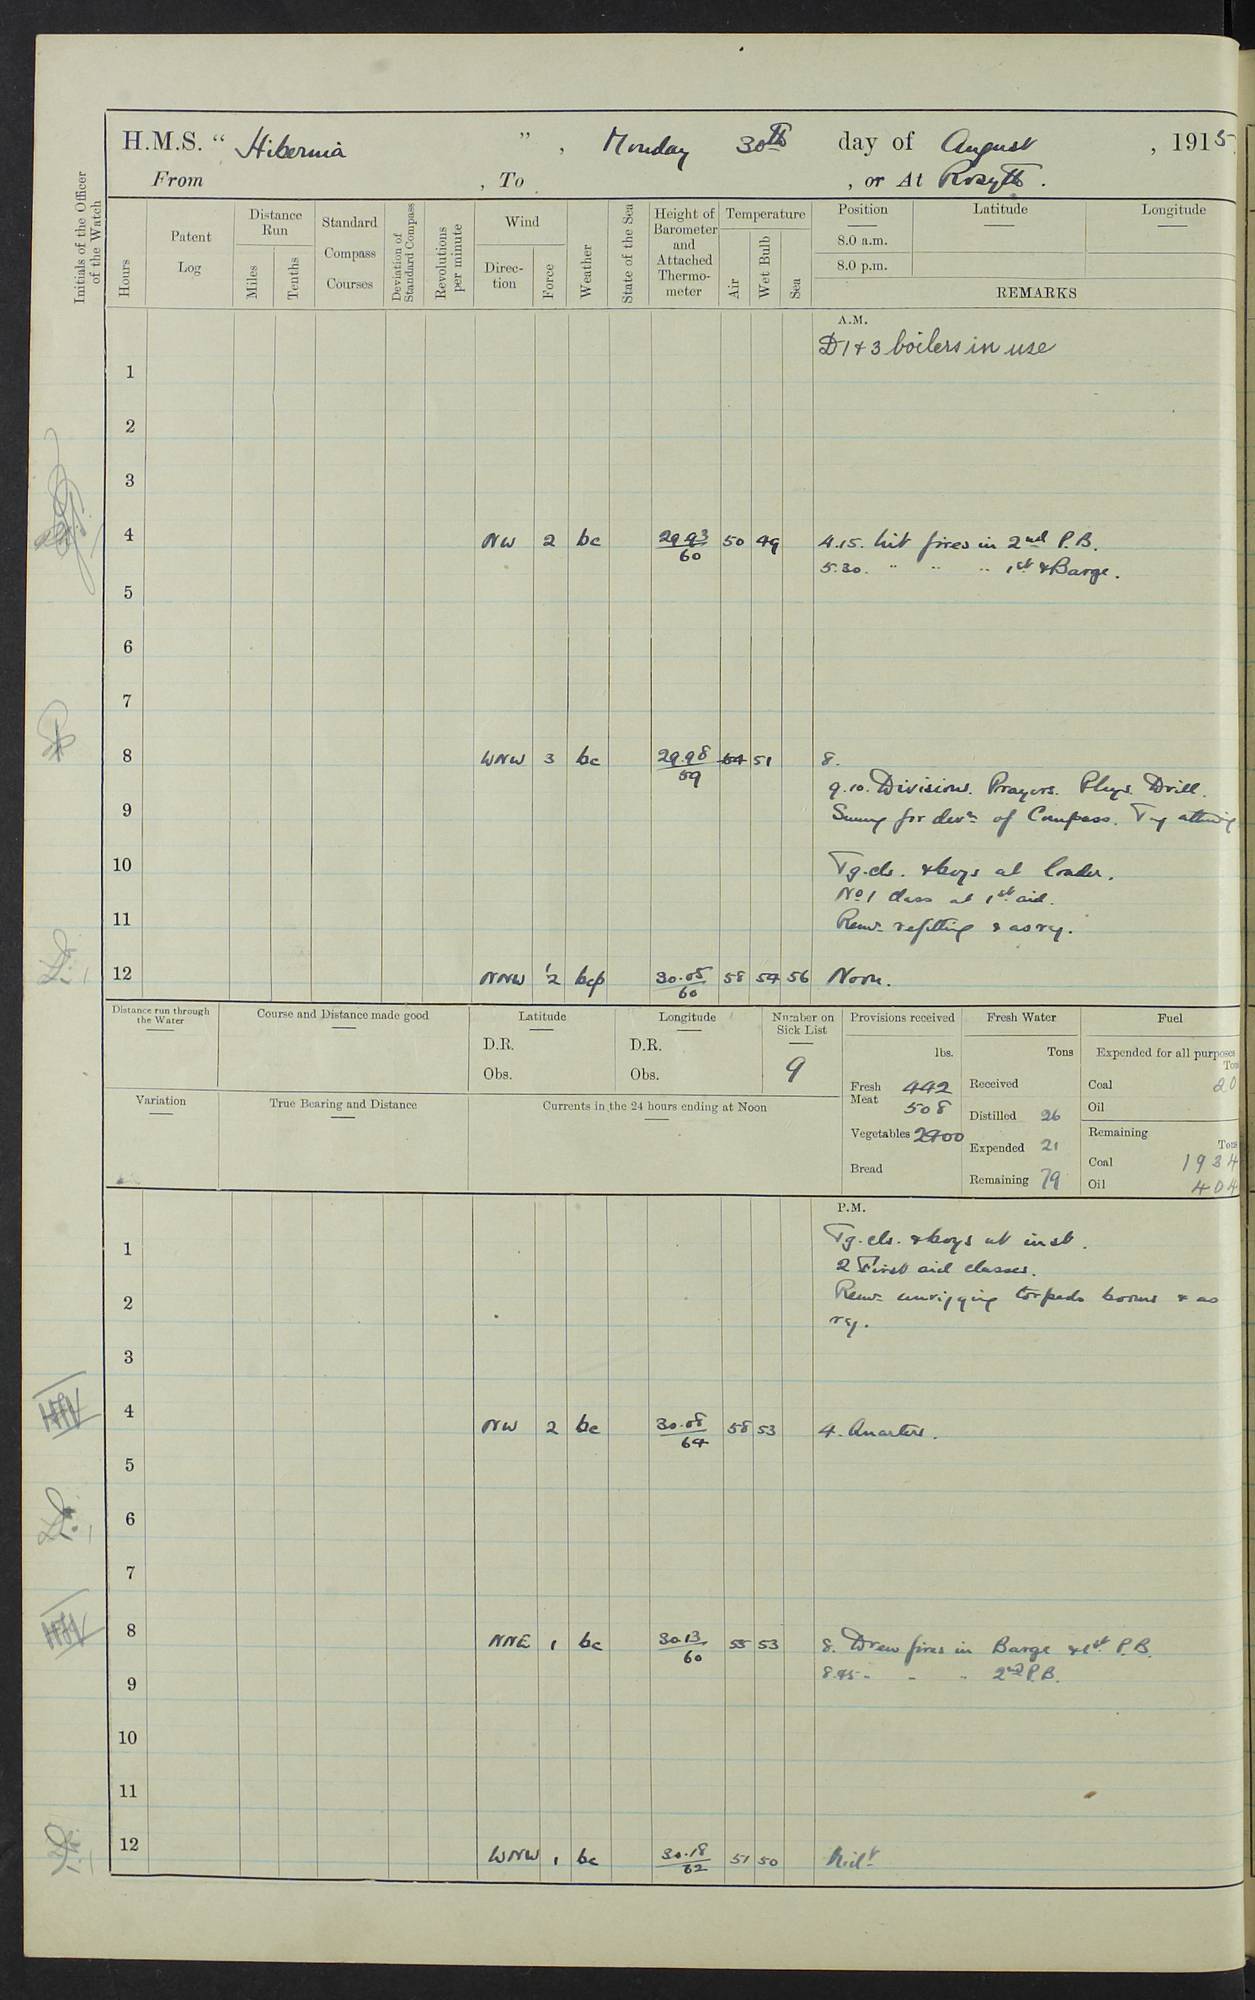 H.M.S. " Hibernia ", Monday 30th day of August, 1915.
From , To , or At Rosyth.
Initials of the Officer of the Watch
Hours
Patent Log
Distance Run
Miles
Tenths
Standard Compass Courses
Deviation of Standard Compass
Revolutions per minute
Wind
Direction
Force
Weather
State of the Sea
Height of Barometer and Attached Thermometer
Temperature
Air
Wet Bulb
Sea
Position
8.0 a.m.
8.0 p.m.
Latitude
Longitude
REMARKS
A.M.
D 1 & 3 boilers in use
1
2
3
4 NW 2 bc 29.93/60 50 49 4.15. Lit fires in 2nd P.B.
5.30. " " " 1st & Barge.
5
6
7
8 WNW 3 bc 29.98/59 54 51 8.
9.10. Divisions. Prayers. Phys. Drill.
9 Swung for devn of Compass. Tug
10 Tg. cls. & boys at loader.
No 1 class at 1st aid.
11 Remr refitting & as rq.
12 NNW 1/2 bcp 30.05/60 58 54 56 Noon.
Distance run through the Water
Course and Distance made good
Latitude
D.R.
Obs.
Longitude
D.R.
Obs.
Number on Sick List
9
Provisions received
lbs.
Fresh Meat 442
508
Vegetables 2400
Bread
Fresh Water
Tons
Received
Distilled 26
Expended 21
Remaining 79
Fuel
Expended for all purposes
Tons
Coal 20
Oil
Remaining
Tons
Coal 1934
Oil 404
Variation
True Bearing and Distance
Currents in the 24 hours ending at Noon
P.M.
1 Tg. cls. & boys at inst.
2 First aid classes.
2 Remr unrigging torpedo booms & as
rq.
3
4 NW 2 bc 30.08/64 58 53 4. Quarters.
5
6
7
8 NNE 1 bc 30.13/60 55 53 8. Drew fires in Barge & 1st P.B.
8.45 " " " 2nd P.B.
9
10
11
12 WNW 1 bc 30.18/62 51 50 Midt